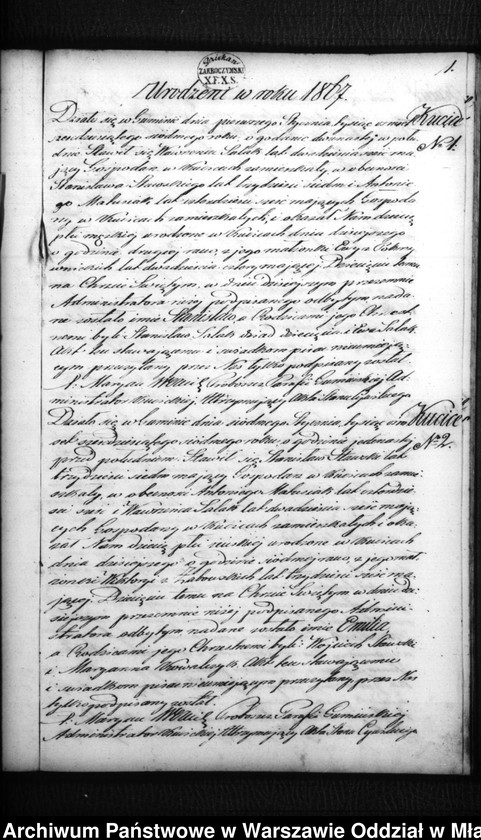 Dziekan
ZAKROCZYMSKI
X.F.X.S.
1.
Urodzeni w roku 1867.
Działo się w Guminie dnia pierwszego Stycznia tysiąc osiemset
sześćdziesiątego siódmego roku, o godzinie dwunastej w połu-
dnie Stawił się Wawrzeniec Salak lat dwadzieścia sześć ma-
jący Gospodarz w Kucicach zamieszkały, w obecności
Stanisława Sławskiego lat trzydzieści siedm i Antonie-
go Matusiak lat czterdzieści sześć mających Gospoda-
rzy w Kucicach zamieszkałych, i okazał Nam dziecię
płci męzkiej urodzone w Kucicach dnia dzisiejszego
o godzinie drugiej rano, z jego małżonki Ewy z
lat dwadzieścia cztery mającej. Dziecięciu temu
na Chrzcie Świętym, w dniu dzisiejszym przezemnie
Administratora niżej podpisanego odbytym nada-
ne zostało imie a Rodzicami jego Chrzest-
nemi byli Stanisław Salak dziad dziecięcia i Ewa Salak.
Akt ten stawającemu i świadkom pisać nieumieją-
cym przeczytany przez Nas tylko podpisany został.
X. Maryan Proboszcz Parafii Gumińskiej Ad-
ministrator Kucickiej Utrzymujący Akta Stanu Cywilnego
Kucice
№ 1.
Działo się w Gumine dnia siódmego Stycznia, tysiąc osm-
set sześćdziesiątego siódmego roku, o godzinie jedenastej
przed południem. Stawił się Stanisław Sławski lat
trzydzieści siedm mający Gospodarz w Kucicach zamie-
szkały, w obecności Antoniego Matusiak lat czterdzie-
ści sześć i Wawrzeńca Salak lat dwadzieścia sześć mają-
cych Gospodarzy w Kucicach zamieszkałych i oka-
zał Nam dziecię płci żeńskiej urodzone w Kucicach
dnia dzisiejszego o godzinie siódmej rano, z jego mał-
żonki Wiktoryi z Żabowskich lat trzydzieści sześć ma-
jącej. Dziecięciu temu na Chrzcie Świętym w dniu dzi-
siejszym przezemnie niżej podpisanego Admini-
stratora odbytym nadane zostało imie Emilia,
a Rodzicami jego Chrzestnemi byli: Wojciech Sławski
i Maryanna Kowalczyk. Akt ten Stawającemu
i świadkom pisać nieumiejącym przeczytany przez Nas
tylko podpisany został.
X. Maryan Proboszcz Parafii Gumińskiej
Administrator Kucickiej Utrzymujący Akta Stanu Cywilnego
Kucice
№ 2.
Archiwum Państwowe w Warszawie Oddział w Mła